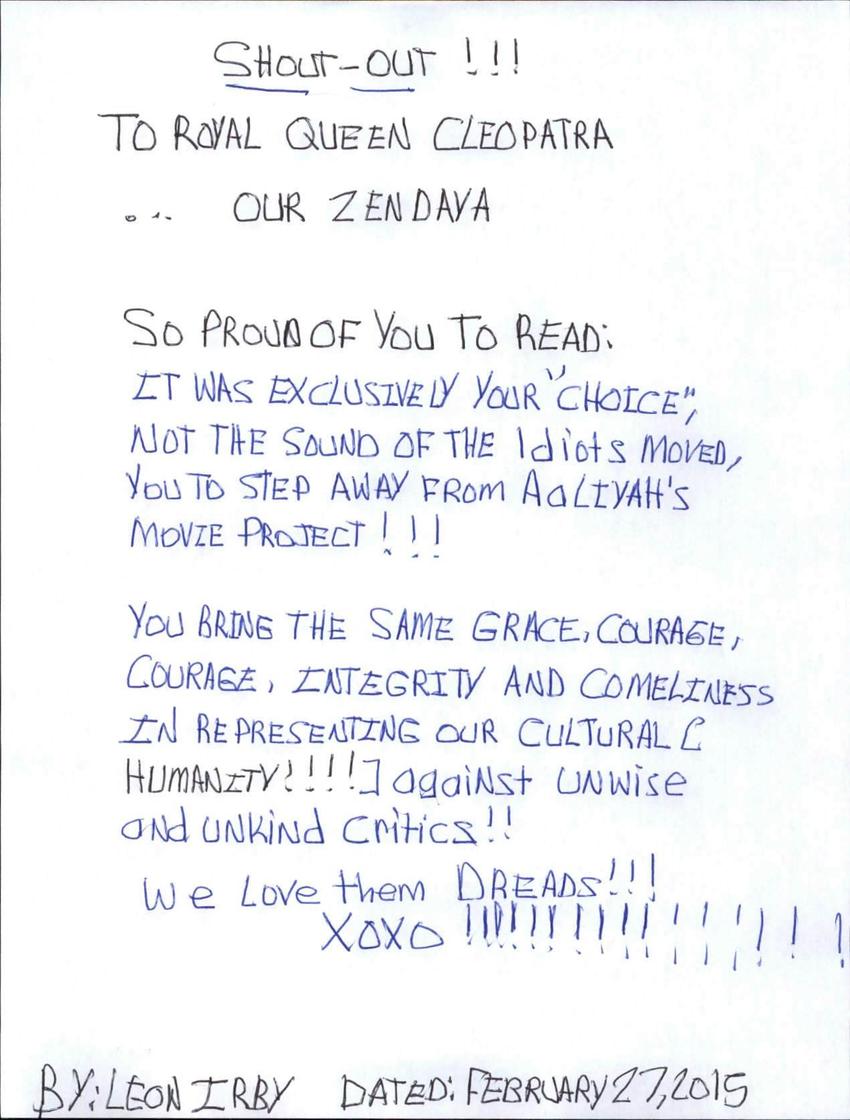 SHOUT-OUT !!!
TO ROYAL QUEEN CLEOPATRA
... OUR ZENDAYA
SO PROUD OF YOU TO READ:
IT WAS EXCLUSIVELY YOUR "CHOICE",
NOT THE SOUND OF THE IdiotS MOVED,
YOU TO STEP AWAY FROM AaLIYAH'S
MOVIE PROJECT!!!
YOU BRING THE SAME GRACE, COURAGE,
COURAGE, INTEGRITY AND COMELINESS
IN REPRESENTING OUR CULTURAL [
HUMANITY!!!!] agaiNst UNWise
aNd UNKiNd Critics!!
We Love them DREADS!!!
XOXO !!!!!!!!!!!!!!!!!
BY: LEON IRBY DATED: FEBRUARY 27, 2015